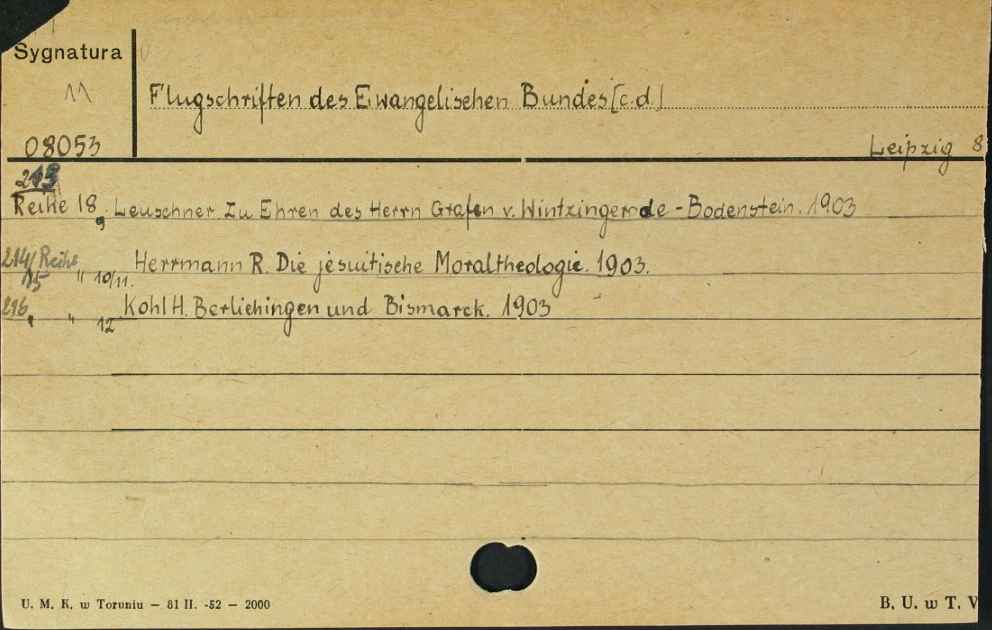 Sygnatura
11
Flugschriften des Ewangelischen Bundes [c.d.]
08053
Leipzig 8
213
Reihe 18, 9 Leuschner Zu Ehren des Herrn Grafen v. Wintzingerode-Bodenstein. 1903
214/15 Reihe " 10/11. Herrmann R. Die jesuitische Moraltheologie. 1903.
216, " 12 Kohl H. Berlichingen und Bismarck. 1903
U. M. K. w Toruniu — 81 II. -52 — 2000
B. U. w T. V